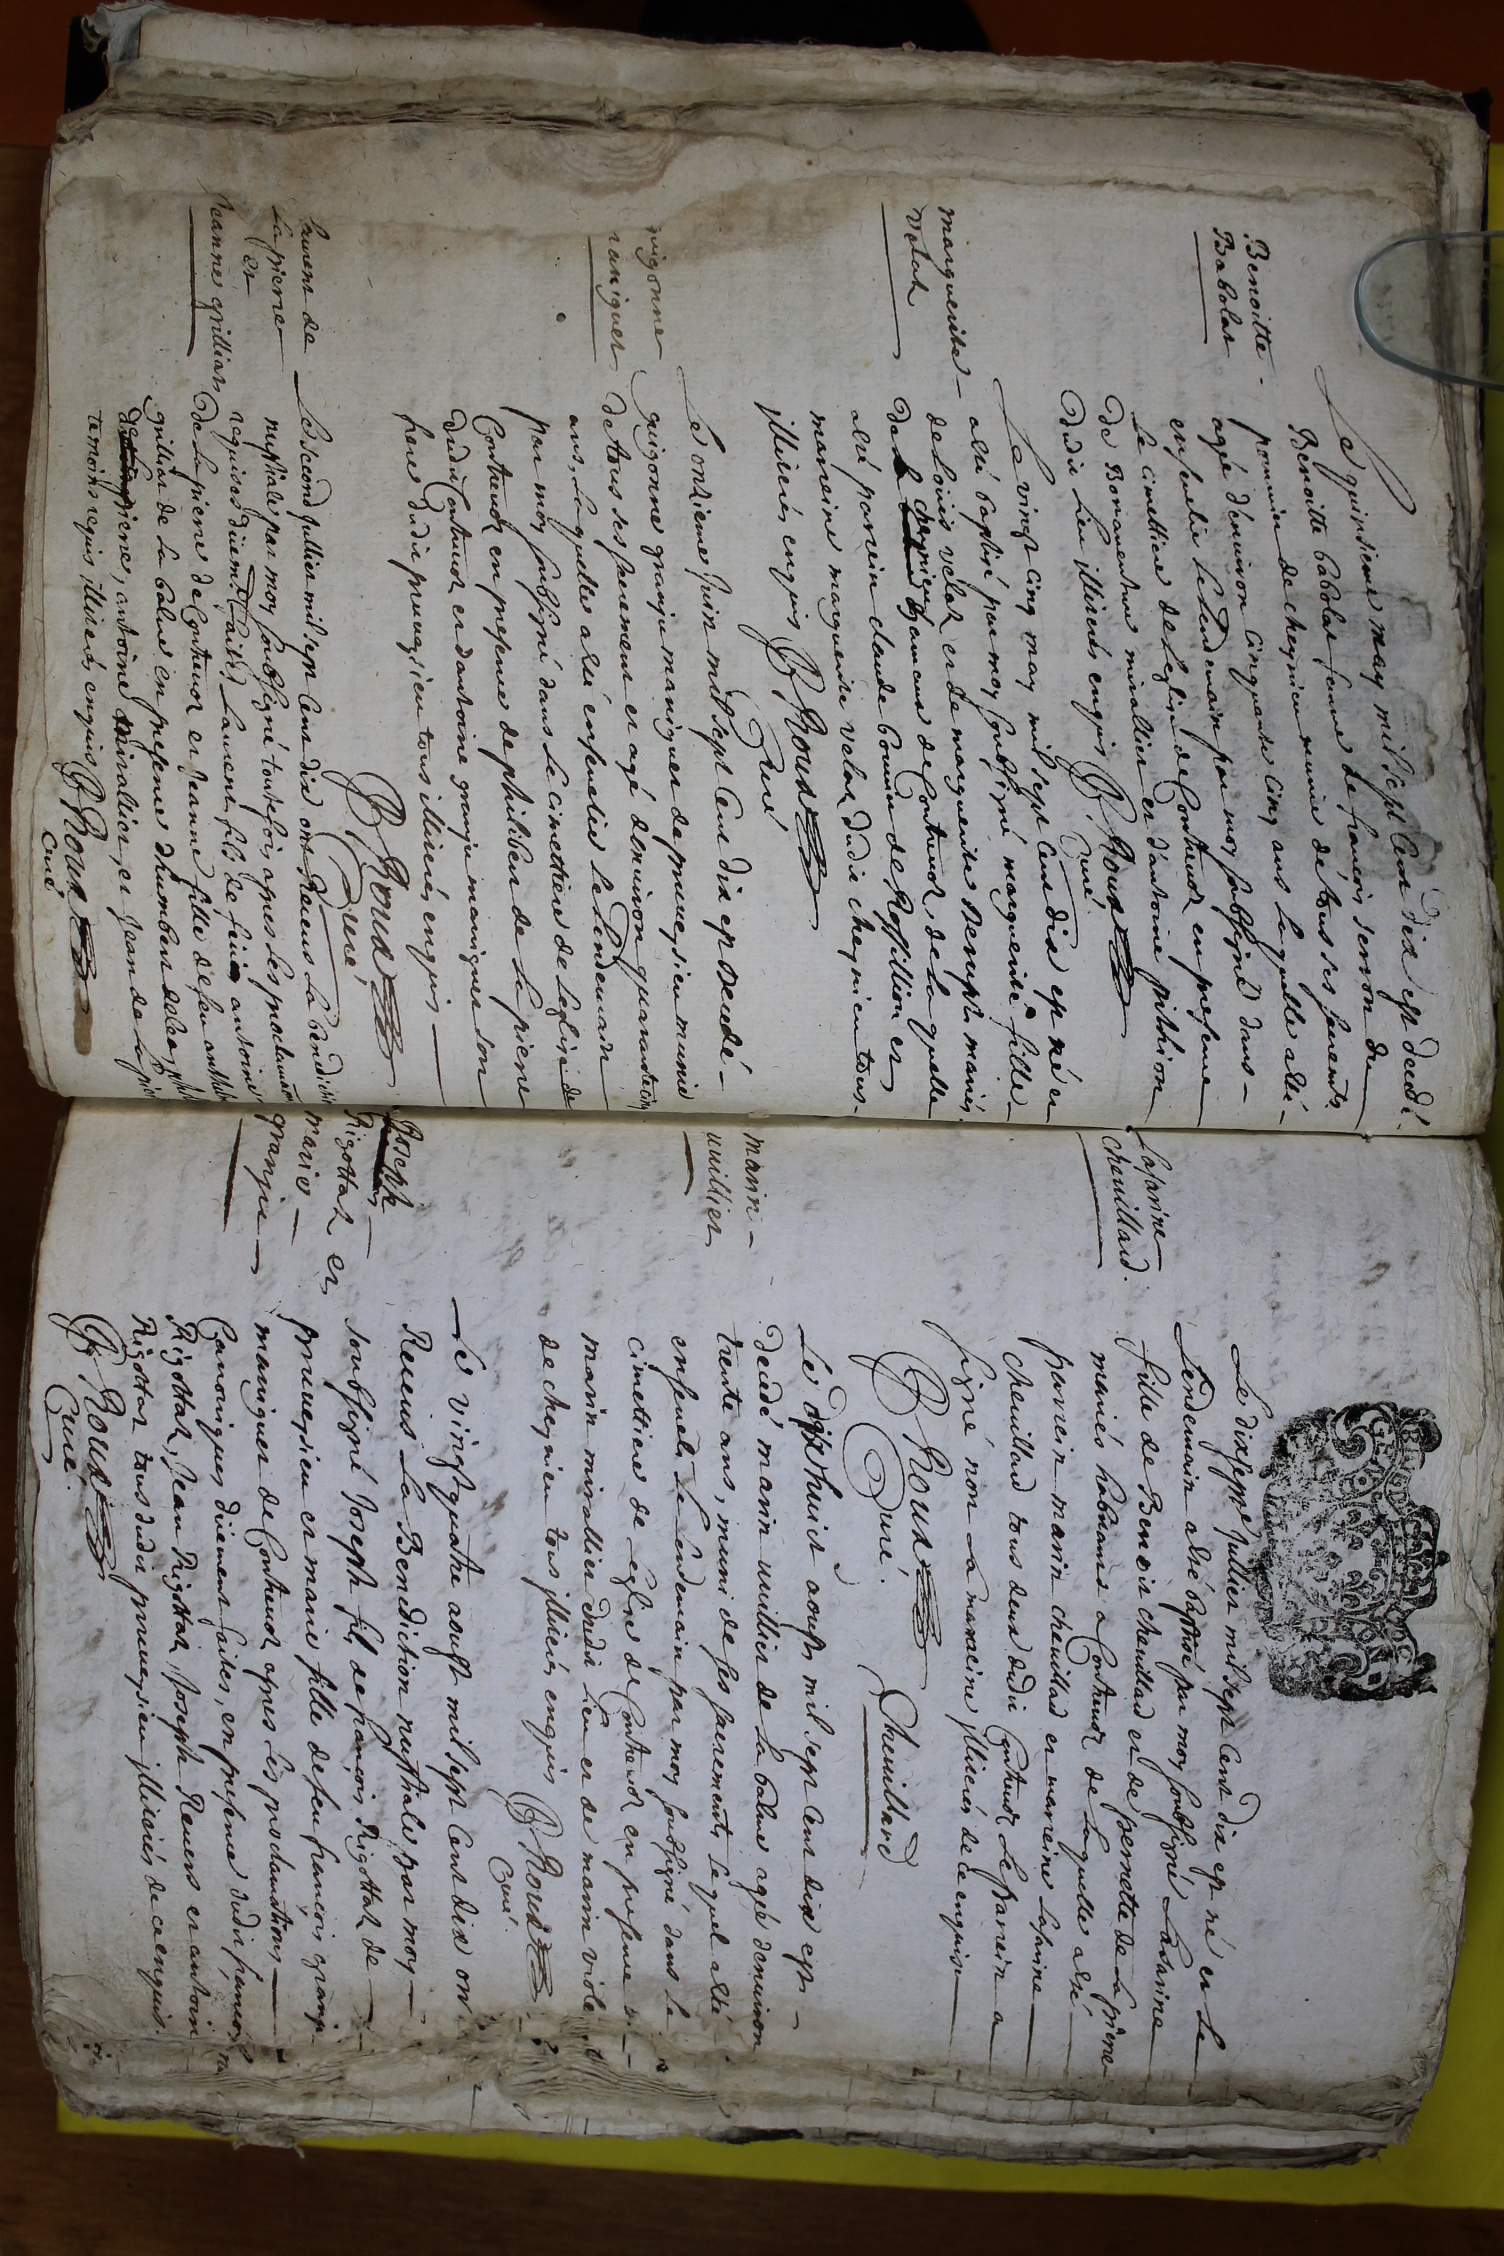 Benoitte
Babolat
Le quinsieme may mil sept cent dix est decedé
Benoitte babolat femme de francois serron du
pommier de cheynieu munie de tous ses sacrements
agée d'environ cinquante cinq ans laquelle a été
ensevelie le lendemain par moy soubsigné dans
le cimettiere de leglise de Contrevoz en presence
de Bonaventure mirallier et d'antoine pithion
dudit lieu illiterés enquis B Roux
Curé
marguerite
velat
Le vingt cinq may mil sept cent dix est né et
a été baptisé par moy soubsigné marguerite fille
de louis velat et de marguerite mariés
de cheynieu de Contrevoz, de laquelle
a été parrein claude bouvier de Rossillion et
marreine marguerite velat dudit cheynieu tous
illiterés enquis B Roux
Curé
guigonne
maniguet
Le onzieme juin mil sept cent dix est decedé
guigonne granju maniguet de preveysieu munie
de tous ses sacrements et agé denviron quarante cinq
ans, laquelle a été ensevelie le lendemain
par moy soubsigné dans le cimettiere de leglise de
Contrevoz en presence de philibert de la pierre
dudit Contrevoz et dantoine granju maniguet son
frere dudit preveysieu tous illiterés enquis
B Roux
Curé
Laurent de
la pierre
et
Jeanne grilliat
Le second juillet mil sept cent dix ont Receus la benediction
nuptiale par moy soubsigné toutefois apres les proclamations
requises düement faites Laurent fils de feu antoine
de la pierre de Contrevoz et Jeanne fille de feu anthelme
grilliat de la balme en presence d'humbert
de la pierre, antoine mirallier, et Jean de la pierre
temoins requis illiterés enquis B Roux
curé
Lasarine
chevillard
Le dixsept juillet mil sept cent dix est né et le
lendemain a été baptisé par moy soubsigné Lasarine
fille de Benoit chevillard et de pernette de la pierre
mariés habitants a Contrevoz de laquelle a été
parrein marin chevillard et marreine Lasarine
chevillard tous deux dudit Contrevoz le parrein a
signé non la marreine illiterée de ce enquise
B Roux
Curé. Chevillard
marin
vuillier
Le dix huict aoust mil sept cent dix est
decedé marin vuillier de la balme agé denviron
trente ans, muni de ses sacrements lequel a été
enseveli le lendemain par moy soubsigné dans le
cimettiere de leglise de Contrevoz en presence de
marin mirallier dudit lieu et de marin violet
de cheynieu tous illiterés enquis B Roux
Curé
Joseph
Rigottat et
marie
granju
Le vingt quatre aoust mil sept cent dix on
Receus la Benediction nuptiale par moy
soubsigné Joseph fils de françois Rigottat de
preveysieu et marie fille de feu françois granju
maniguet de Contrevoz apres les proclamations
Canoniques düement faites, en presence dudit françois
Rigottat, Jean Rigottat, Joseph Revers et antoine
Rigottat tous dudit preveysieu illiterés de ce enquis.
B Roux
Curé